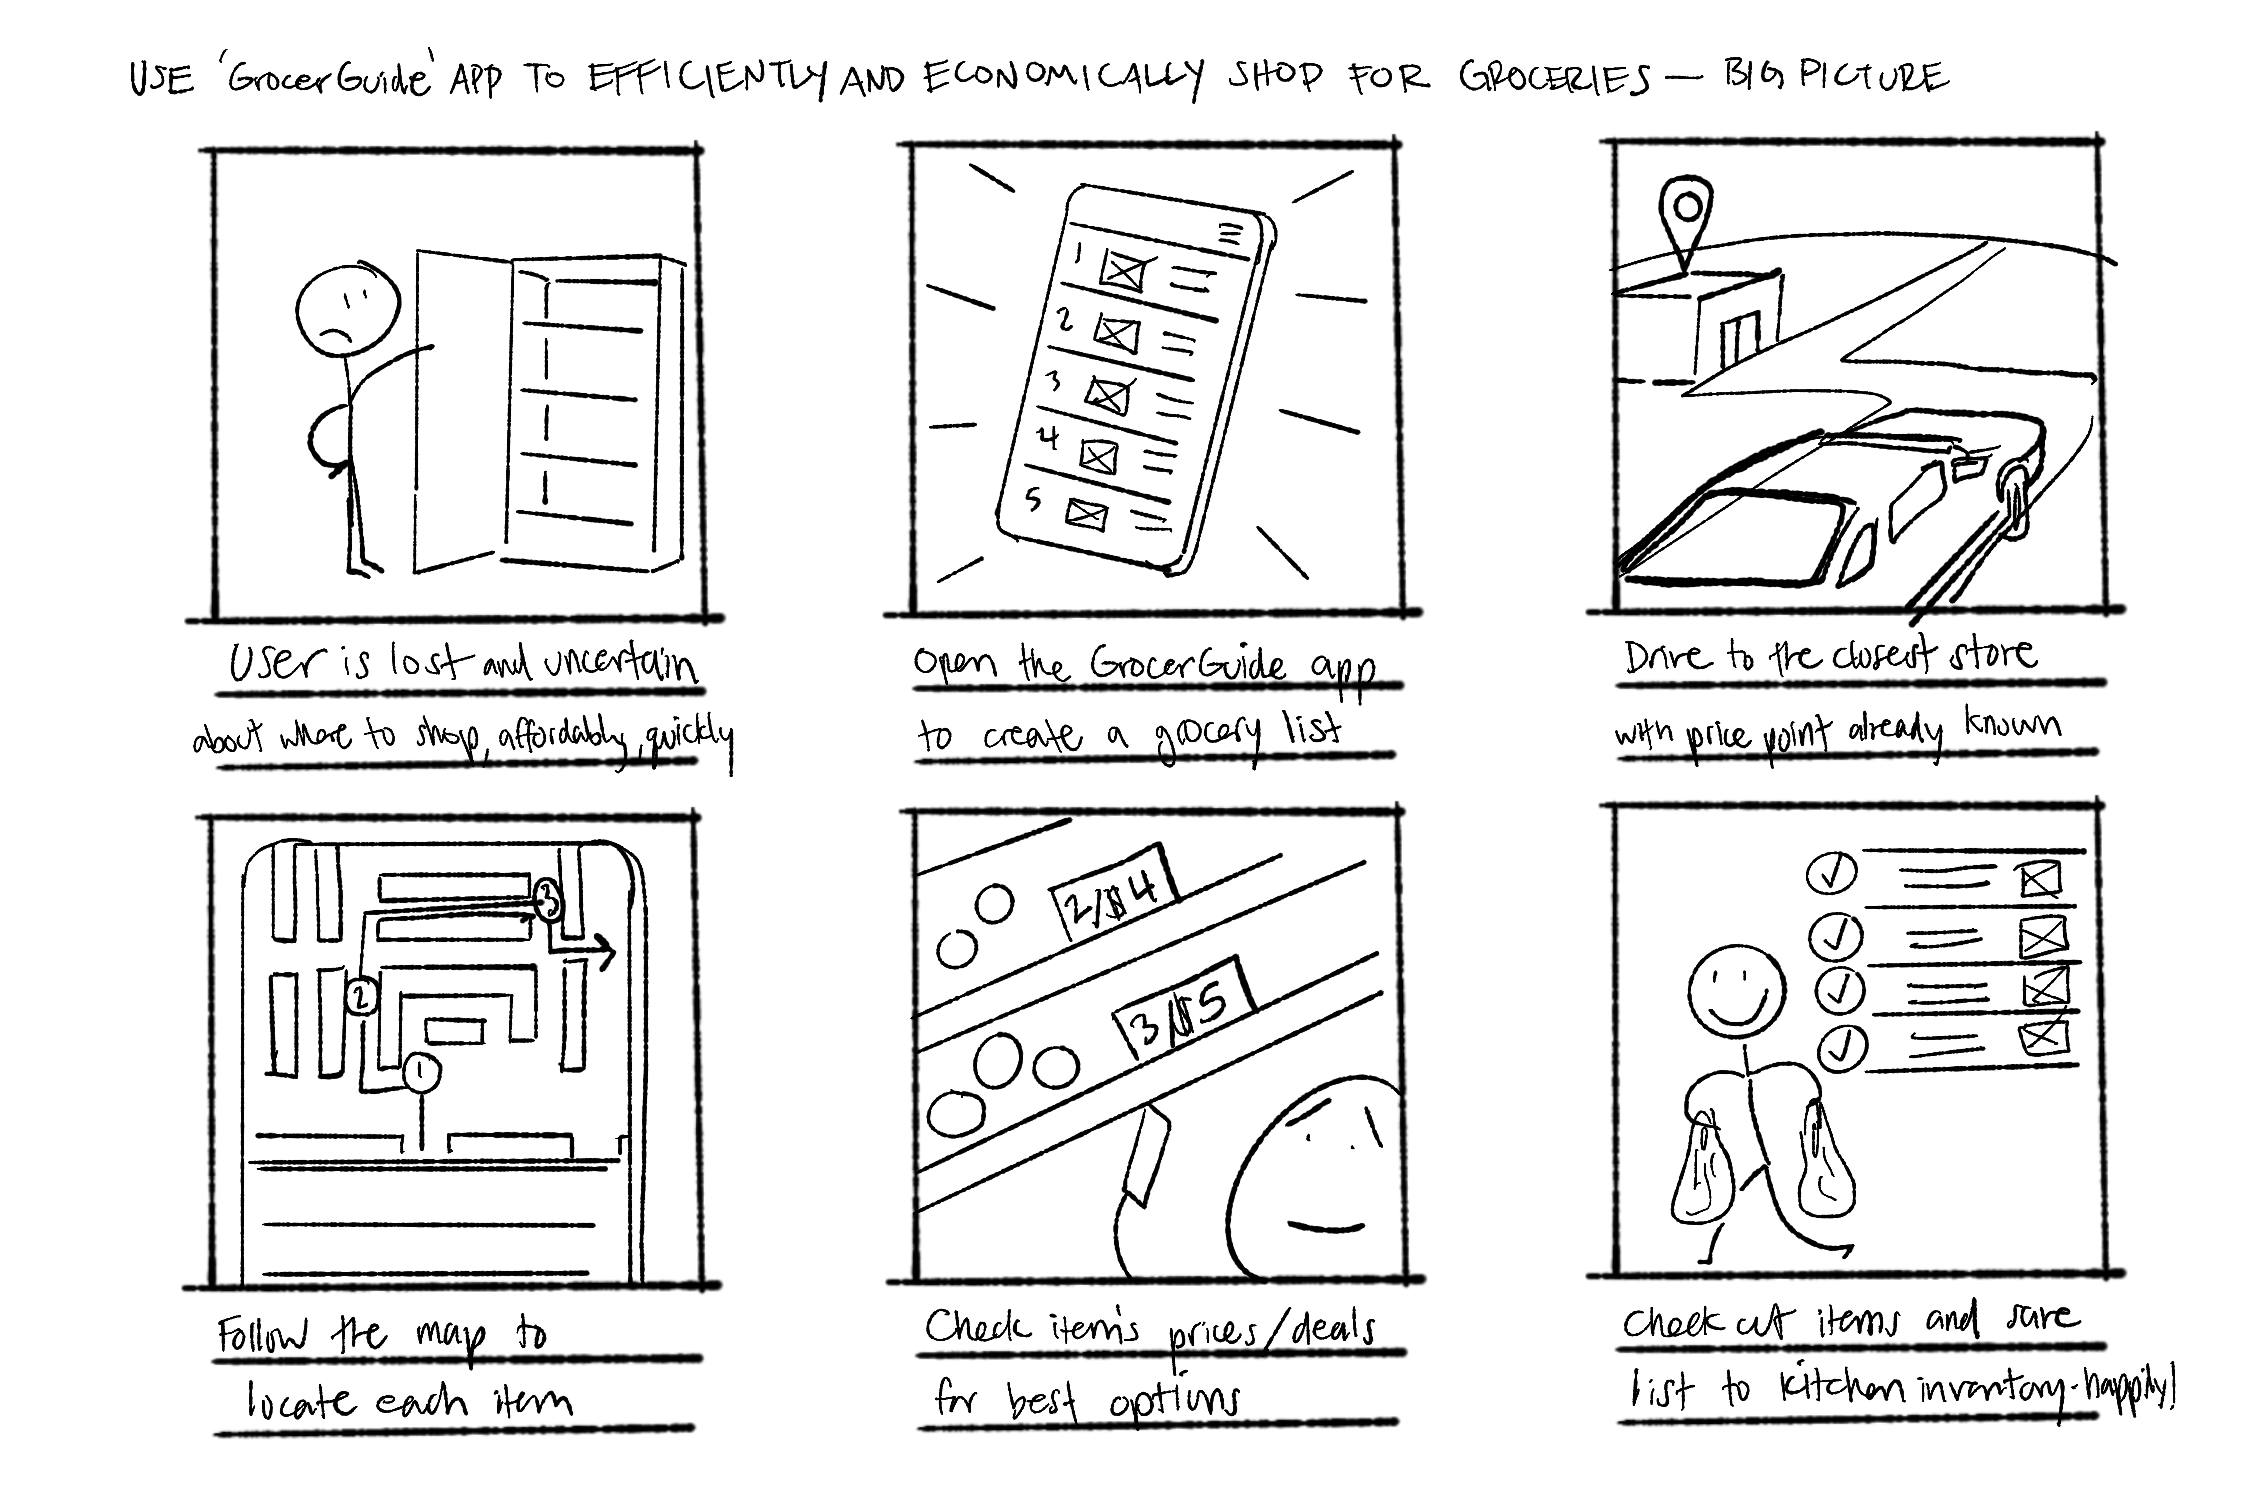 USE 'GrocerGuide' APP TO EFFICIENTLY AND ECONOMICALLY SHOP FOR GROCERIES — BIG PICTURE
1
2
3
4
5
User is lost and uncertain
about where to shop, affordably, quickly
Open the GrocerGuide app
to create a grocery list
Drive to the closest store
with price point already known
3
2
1
2/$4
3/$5
Follow the map to
locate each item
Check item's prices/deals
for best options
Check out items and save
list to kitchen inventory-happily!